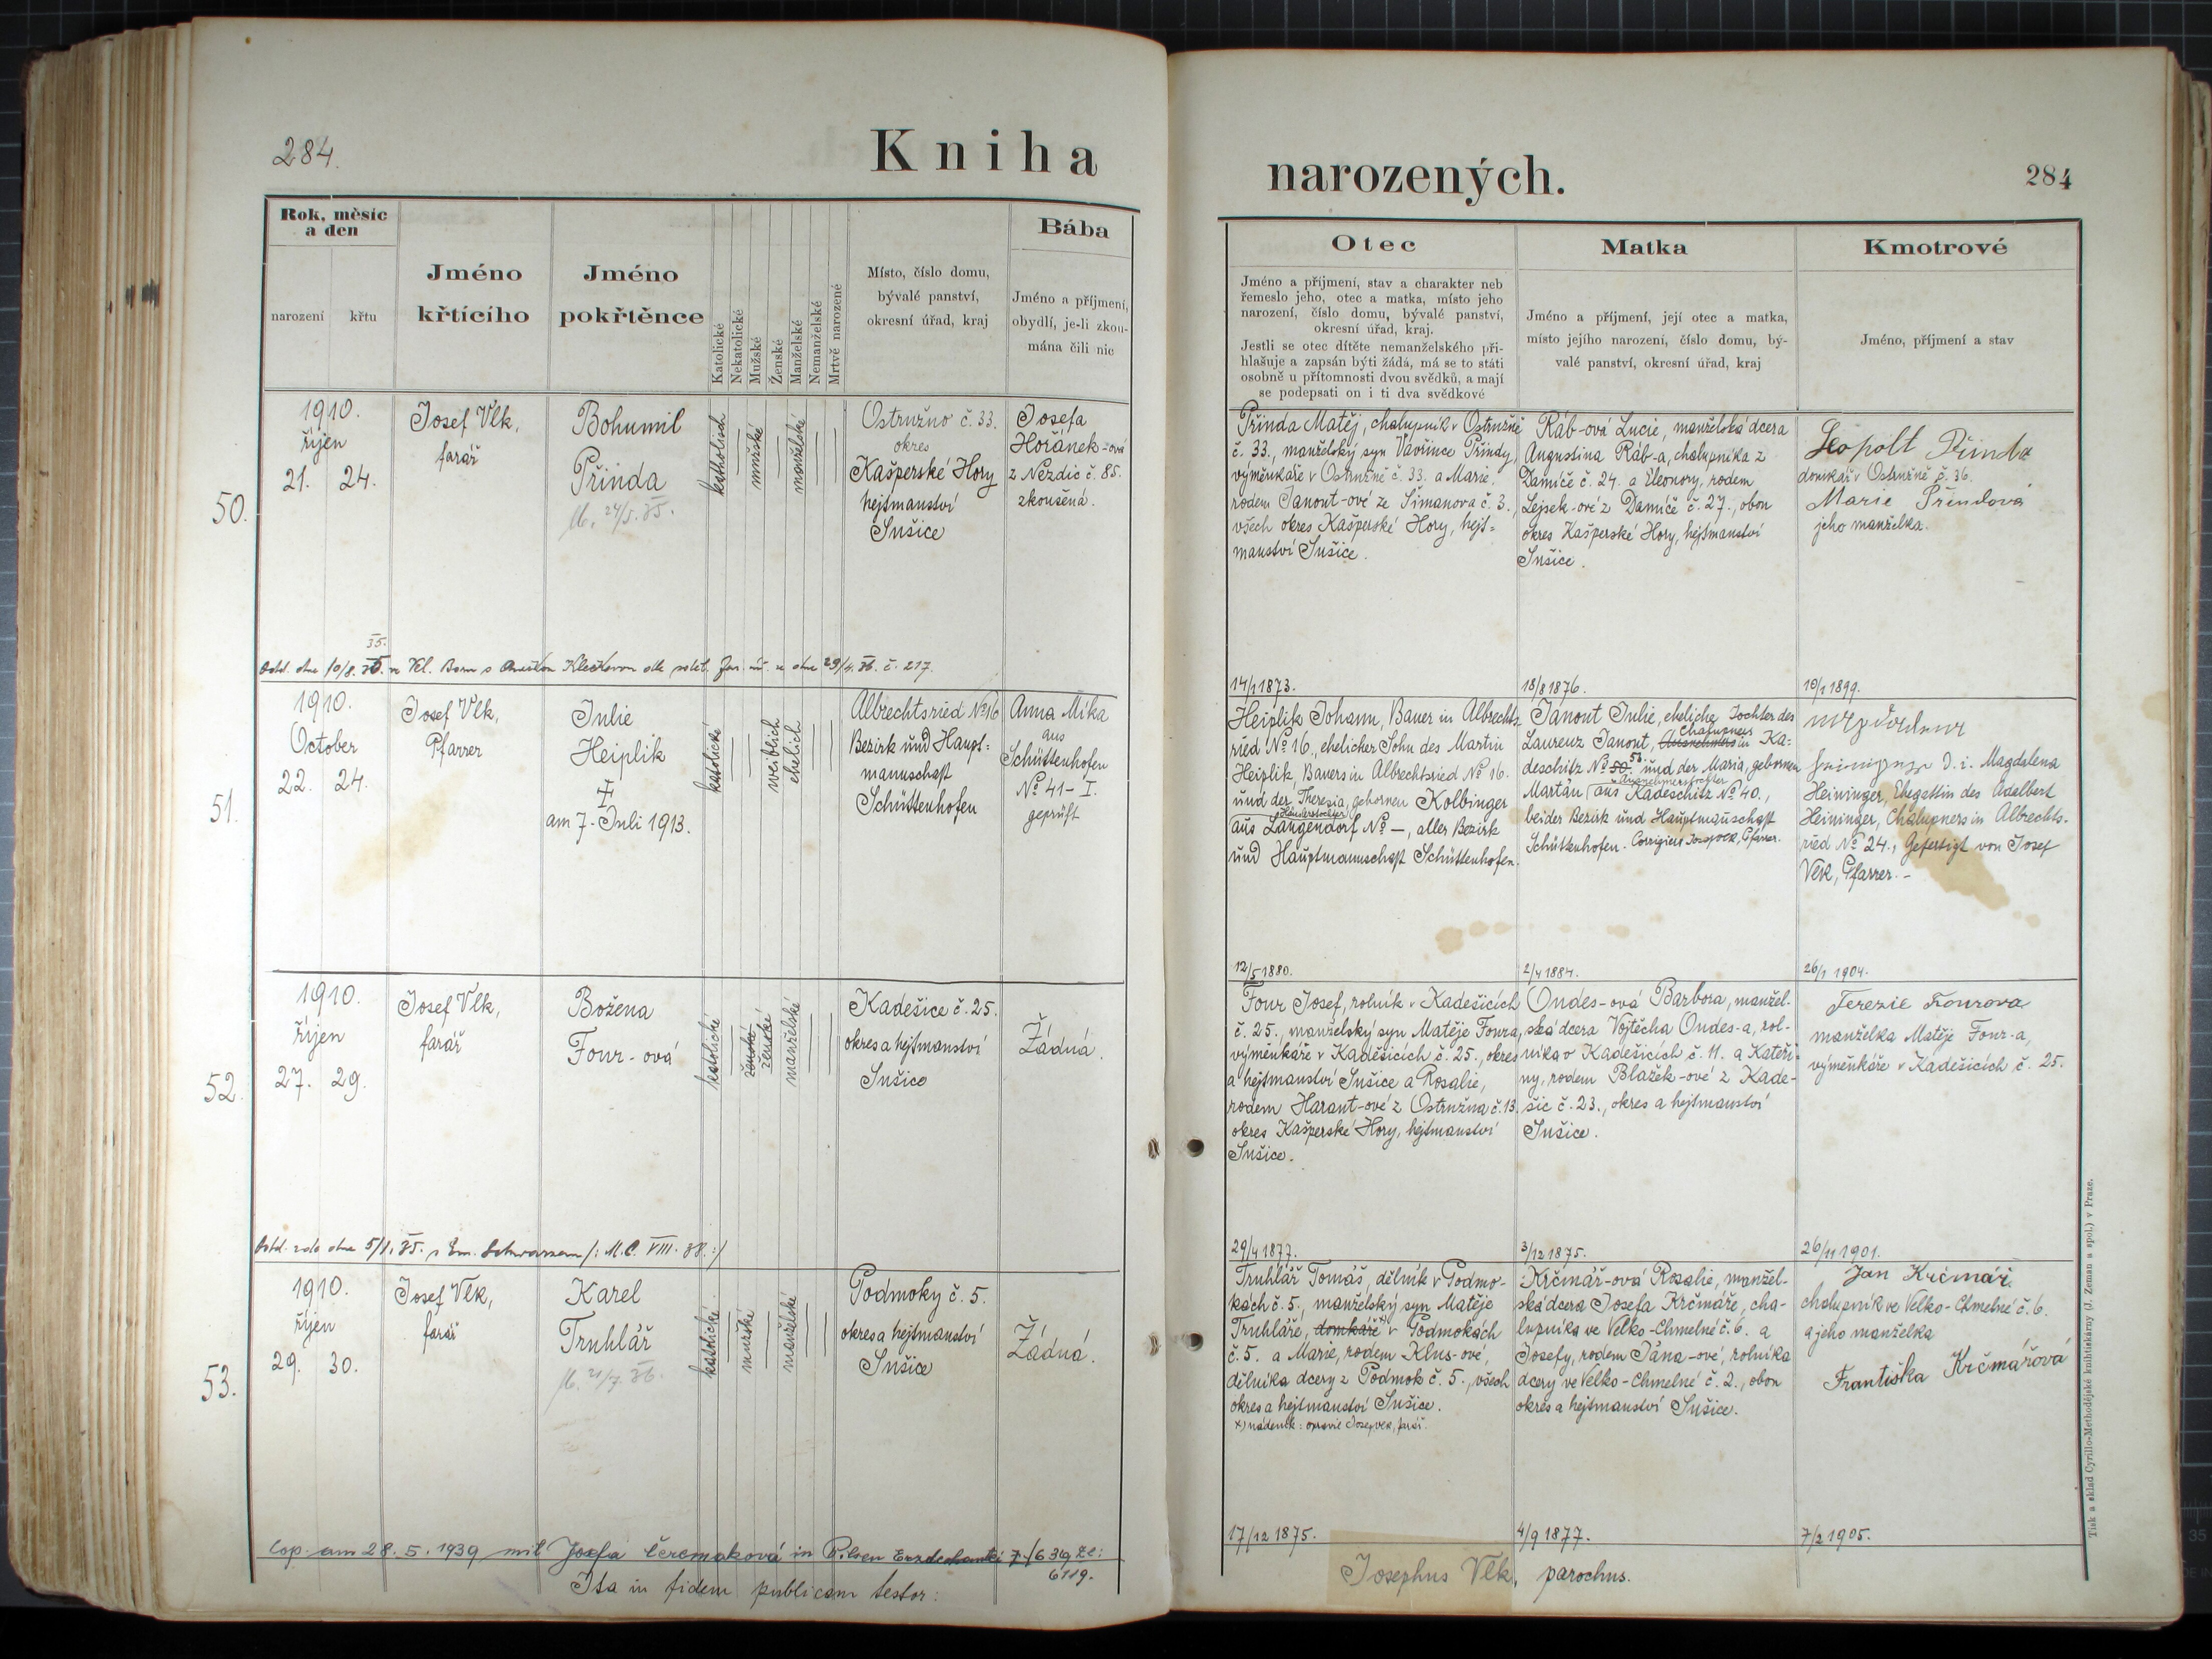 284.
Kniha
Rok, měsíc
a den
narození
křtu
Jméno
křtícího
Jméno
pokřtěnce
Katolické
Nekatolické
Mužské
Ženské
Manželské
Nemanželské
Mrtvě narozené
Místo, číslo domu,
bývalé panství,
okresní úřad, kraj
Bába
Jméno a příjmení,
obydlí, je-li zkou-
mána čili nic
50.
1910.
říjen
21. 24.
Josef Vlk,
farář
Bohumil
Přinda
katholisch
mužské
manželské
Ostružno č. 33.
okres
Kašperské Hory
hejtmanství
Sušice
Josefa
Hořánek-ová
z Nezdic č. 85.
zkoušená.
51.
1910.
October
22. 24.
Josef Vlk,
Pfarrer
Julie
Heiplik
am 7. Juli 1913.
katolické
weiblich
ehelich
Albrechtsried No 16
Bezirk und Haupt=
mannschaft
Schüttenhofen
Anna Mika
aus
Schüttenhofen
No 41 - I.
geprüft
52.
1910.
říjen
27. 29.
Josef Vlk,
farář
Božena
Four-ová
katolické
ženské
ženské
manželské
Kadešice č. 25.
okres a hejtmanství
Sušice
Žádná.
53.
1910.
říjen
29. 30.
Josef Vlk,
farář
Karel
Truhlář
katolické
mužské
manželské
Podmoky č. 5.
okres a hejtmanství
Sušice
Žádná.
cop. am 28. 5. 1939 mit Josefa Čermaková in Pilsen
6119.
Ita in fidem publicam testor:
narozených.
284
Otec
Jméno a příjmení, stav a charakter neb
řemeslo jeho, otec a matka, místo jeho
narození, číslo domu, bývalé panství,
okresní úřad, kraj.
Jestli se otec dítěte nemanželského při-
hlašuje a zapsán býti žádá, má se to státi
osobně u přítomnosti dvou svědků, a mají
se podepsati on i ti dva svědkové
Matka
Jméno a příjmení, její otec a matka,
místo jejího narození, číslo domu, bý-
valé panství, okresní úřad, kraj
Kmotrové
Jméno, příjmení a stav
Přinda Matěj, chalupník v Ostružně
č. 33., manželský syn Vavřince Přindy,
výměnkáře v Ostružně č. 33. a Marie,
rodem Janout-ové ze Šimanova č. 3.,
všech okres Kašperské Hory, hejt=
manství Sušice.
14/1 1873.
Ráb-ová Lucie, manželská dcera
Augustina Ráb-a, chalupníka z
Damíče č. 24. a Eleonory, rodem
Lejsek-ové z Damíče č. 27., obou
okres Kašperské Hory, hejtmanství
Sušice.
18/8 1876.
Leopolt Přinda
domkář v Ostružně č. 36.
Marie Přindová
jeho manželka.
19/1 1899.
Heiplik Johann, Bauer in Albrechts-
ried No 16., ehelicher Sohn des Martin
Heiplik, Bauers in Albrechtsried No 16.
und der Theresia, gebornen Kolbinger
aus Langendorf No —, aller Bezirk
und Hauptmannschaft Schüttenhofen.
12/5 1880.
Janout Julie, eheliche Tochter des
Chalupners
Laurenz Janout, Ausnehmers in Ka-
52.
deschitz No 50. und der Maria, gebornen
Ausnehmerstochter
Martan aus Kadeschitz No 40.,
beider Bezirk und Hauptmannschaft
Schüttenhofen.
2/4 1884.
D. i. Magdalena
Heininger, Ehegattin des Adalbert
Heininger, Chalupners in Albrechts-
ried No 24., Gefertigt von Josef
Vlk, Pfarrer.-
26/1 1904.
Four Josef, rolník v Kadešicích
č. 25., manželský syn Matěje Foura,
výměnkáře v Kadešicích č. 25., okres
a hejtmanství Sušice a Rosalie,
rodem Harant-ové z Ostružna č. 13.
okres Kašperské Hory, hejtmanství
Sušice.
29/4 1877.
Ondes-ová Barbora, manžel-
ská dcera Vojtěcha Ondes-a, rol-
níka v Kadešicích č. 11. a Kateři-
ny, rodem Blažek-ové z Kade-
šic č. 23., okres a hejtmanství
Sušice.
3/12 1875.
Terezie Fourova
manželka Matěje Four-a,
výměnkáře v Kadešicích č. 25.
26/11 1901.
Truhlář Tomáš, dělník v Podmo-
kách č. 5., manželský syn Matěje
Truhláře, domkáře x) v Podmokách
č. 5. a Marie, rodem Klus-ové,
dělníka dcery z Podmok č. 5., všech
okres a hejtmanství Sušice.
x) nádeník: opravil Josef Vlk, farář.
17/12 1875.
Krčmář-ová Rosalie, manžel-
ská dcera Josefa Krčmáře, cha-
lupníka ve Velko-Chmelné č. 6. a
Josefy, rodem Jána-ové, rolníka
dcery ve Velko-Chmelné č. 2., obou
okres a hejtmanství Sušice.
4/9 1877.
Jan Krčmář
chalupník ve Velko-Chmelné č. 6.
a jeho manželka
Františka Krčmářová
7/2 1905.
Josephus Vlk, parochus.
Tisk a sklad Cyrillo-Methodějské knihtiskárny (J. Zeman a spol.) v Praze.